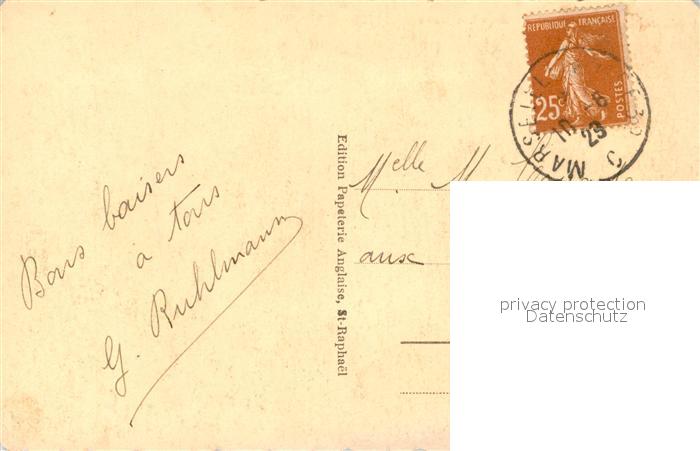 Bons baisers
à tous
G. Ruhlmann
Edition Papeterie Anglaise, St-Raphaël
REPUBLIQUE FRANÇAISE
25c
POSTES
MARSEILLE
10 -8
23
Melle M.
aux
privacy protection
Datenschutz